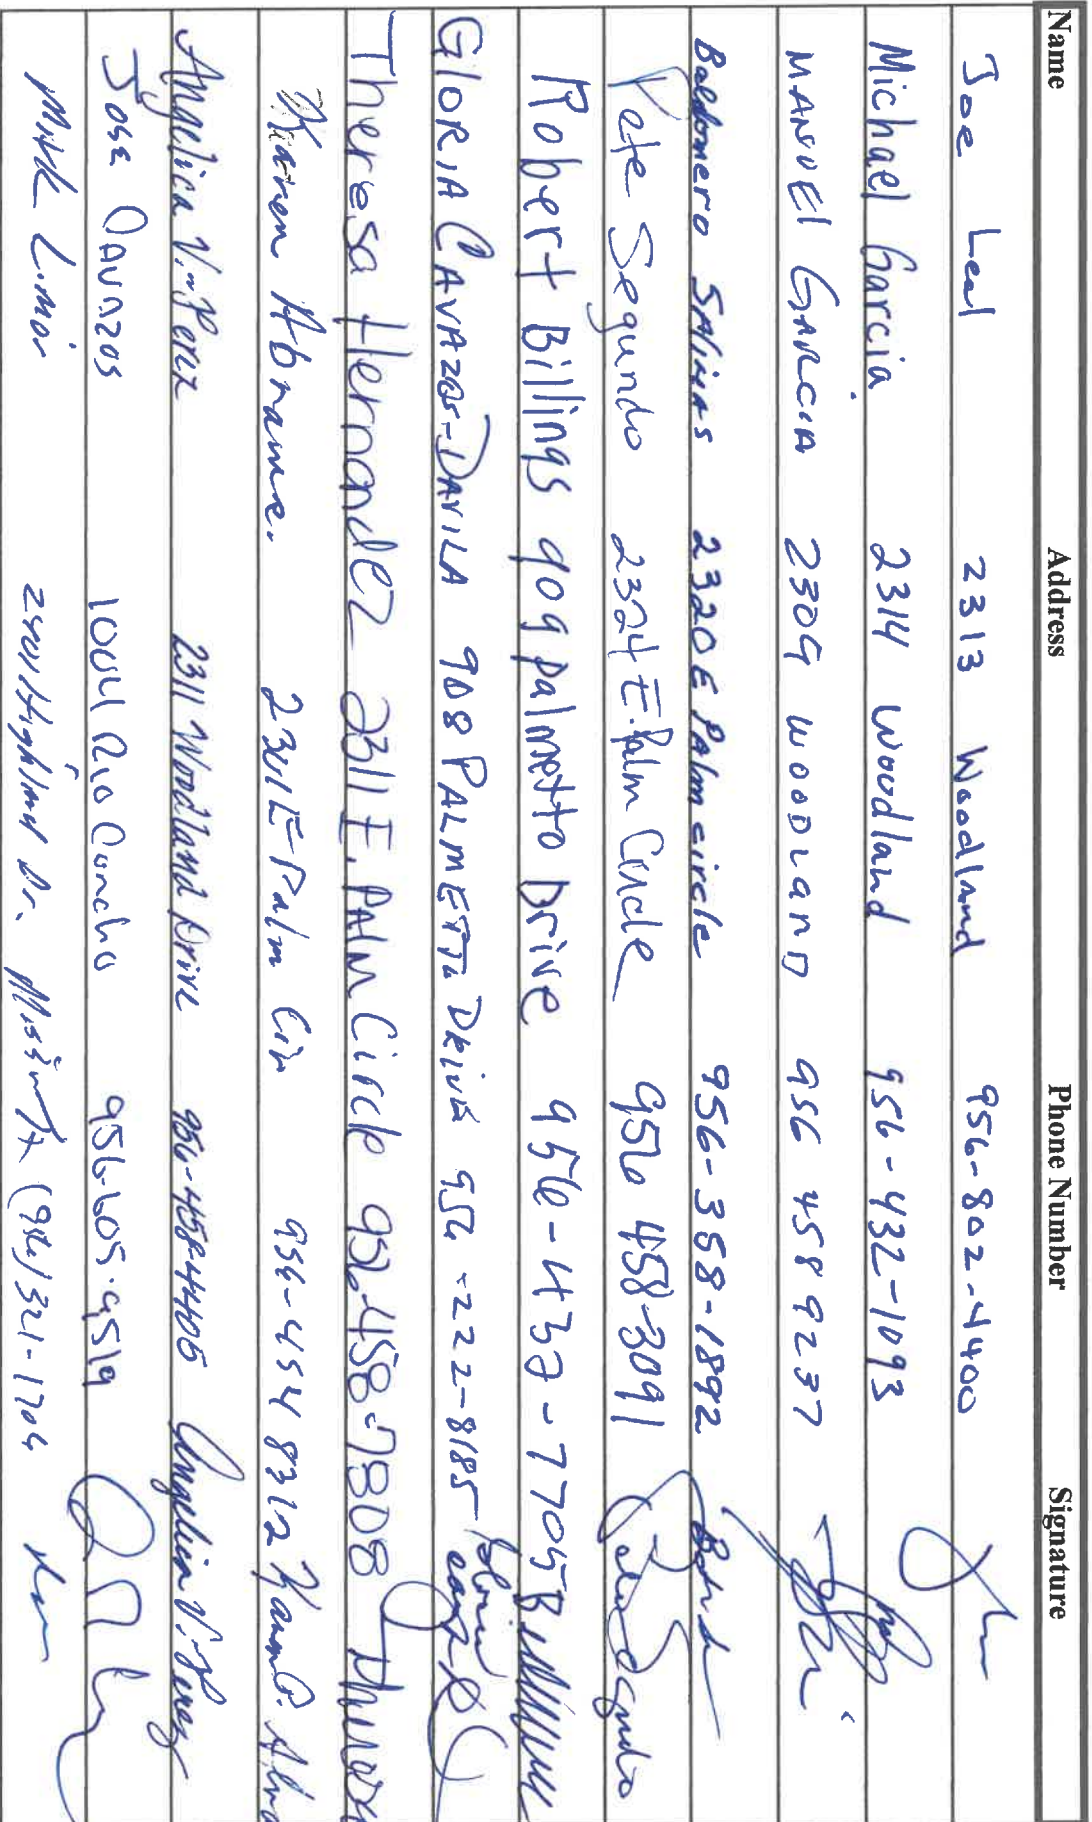 Name Address Phone Number Signature
Joe Leal 2313 Woodland 956-802-4400
Michael Garcia 2314 Woodland 956-432-1093
MANUEL GARCIA 2309 WOODLAND 956 458 9237
Baldomero SAlinAs 2320 E PAlm circle 956-358-1892
Pete Segundo 2324 E. Palm Circle 956 458-3091
Robert Billings 909 palmetto Drive 956-437-7705
GLORIA CAVAZOS-DAVILA 908 PALMETTO DRIVE 956-222-8185
Theresa Hernandez 2311 E. PAlm Circle 956-458-7808
Karen Abrame. E Palm Cir 956-454 8312 Karen
Angelica V. Perez 2311 Woodland Drive 956-458-4405 Angelica V. Perez
Jose CAVAZOS 1004 Rio Concho 956-605-9519
Highland Dr. (956) 321-1704